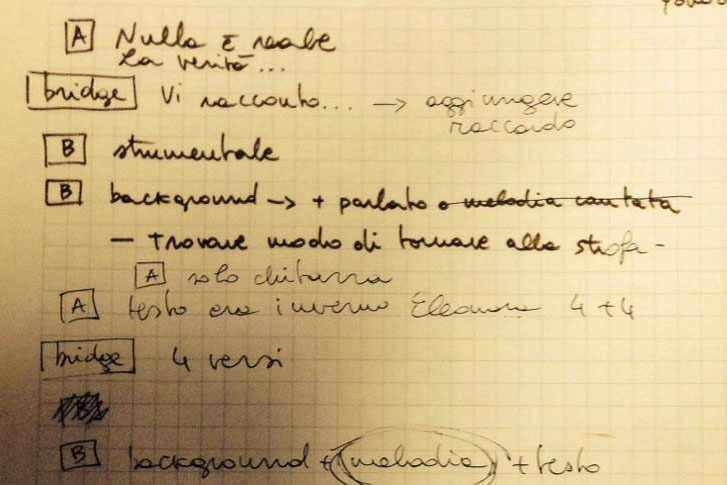 A Nulla è reale
La verità...
bridge Vi racconto... → aggiungere
raccordo
B strumentale
B background → + parlato o melodia cantata
- trovare modo di tornare alla strofa -
A solo chitarra
A testo era inverno Eleonora 4 + 4
bridge 4 versi
B background + (melodia) + testo